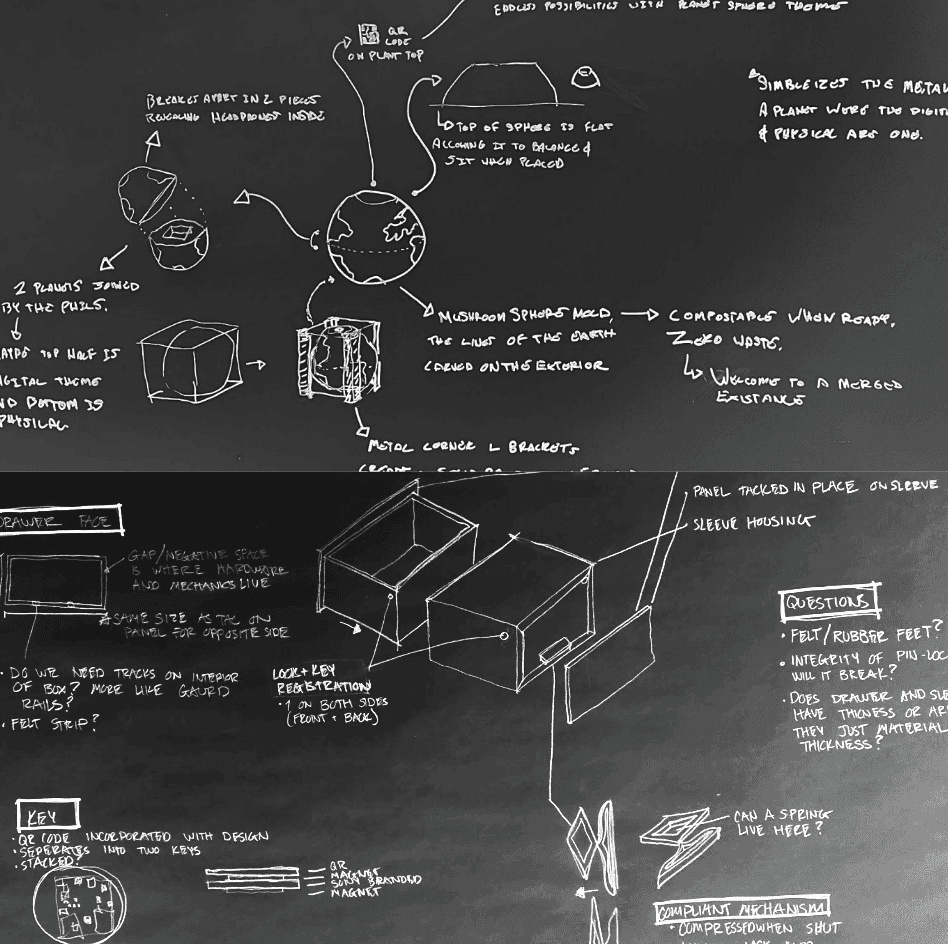 ENDLESS POSSIBILITIES WITH PLANET SPHERE THEME
QR
CODE
ON PLANT TOP
BREAKES APART IN 2 PIECES
REVEALING HEADPHONES INSIDE
TOP OF SPHERE IS FLAT
ALLOWING IT TO BALANCE &
SIT WHEN PLACED
SIMBLEIZES THE METAV
A PLANET WERE THE DIGIT
& PHYSICAL ARE ONE.
2 PLANETS JOINED
BY THE PHILS.
TOP HALF IS
IGITAL THEME
ND BOTTOM IS
PHYSICAL
MUSHROOM SPHERE MOLD,
THE LINES OF THE EARTH
CARVED ON THE EXTERIOR
COMPOSTABLE WHEN READY,
ZERO WASTE.
WELCOME TO A MERGED
EXISTANCE
METAL CORNER L BRACKETS
DRAWER FACE
GAP/NEGATIVE SPACE
IS WHERE HARDWARE
AND MECHANICS LIVE
SAME SIZE AS TAC ON
PANEL FOR OPPOSITE SIDE
• DO WE NEED TRACKS ON INTERIOR
OF BOX? MORE LIKE GAURD
RAILS?
• FELT STRIP?
LOCK + KEY
REGISTRATION
• 1 ON BOTH SIDES
(FRONT + BACK)
PANEL TACKED IN PLACE ON SLEEVE
SLEEVE HOUSING
QUESTIONS
• FELT/RUBBER FEET?
• INTEGRITY OF PIN-LOC
WILL IT BREAK?
• DOES DRAWER AND SLE
HAVE THICNESS OR AR
THEY JUST MATERIAL
THICKNESS?
KEY
• QR CODE INCORPORATED WITH DESIGN
• SEPERATES INTO TWO KEYS
• STACKED?
QR
MAGNET
SONY BRANDED
MAGNET
CAN A SPRING
LIVE HERE?
COMPLIANT MECHANISM
• COMPRESSED WHEN SHUT